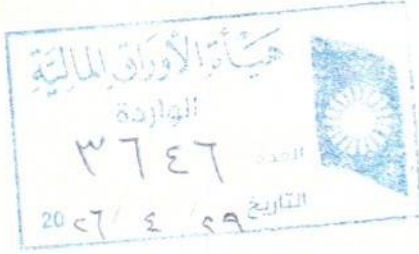 هيأة الأوراق المالية
الواردة
العدد ٣٦٤٦
التاريخ ٢٩ / ٤ / 20٢٦